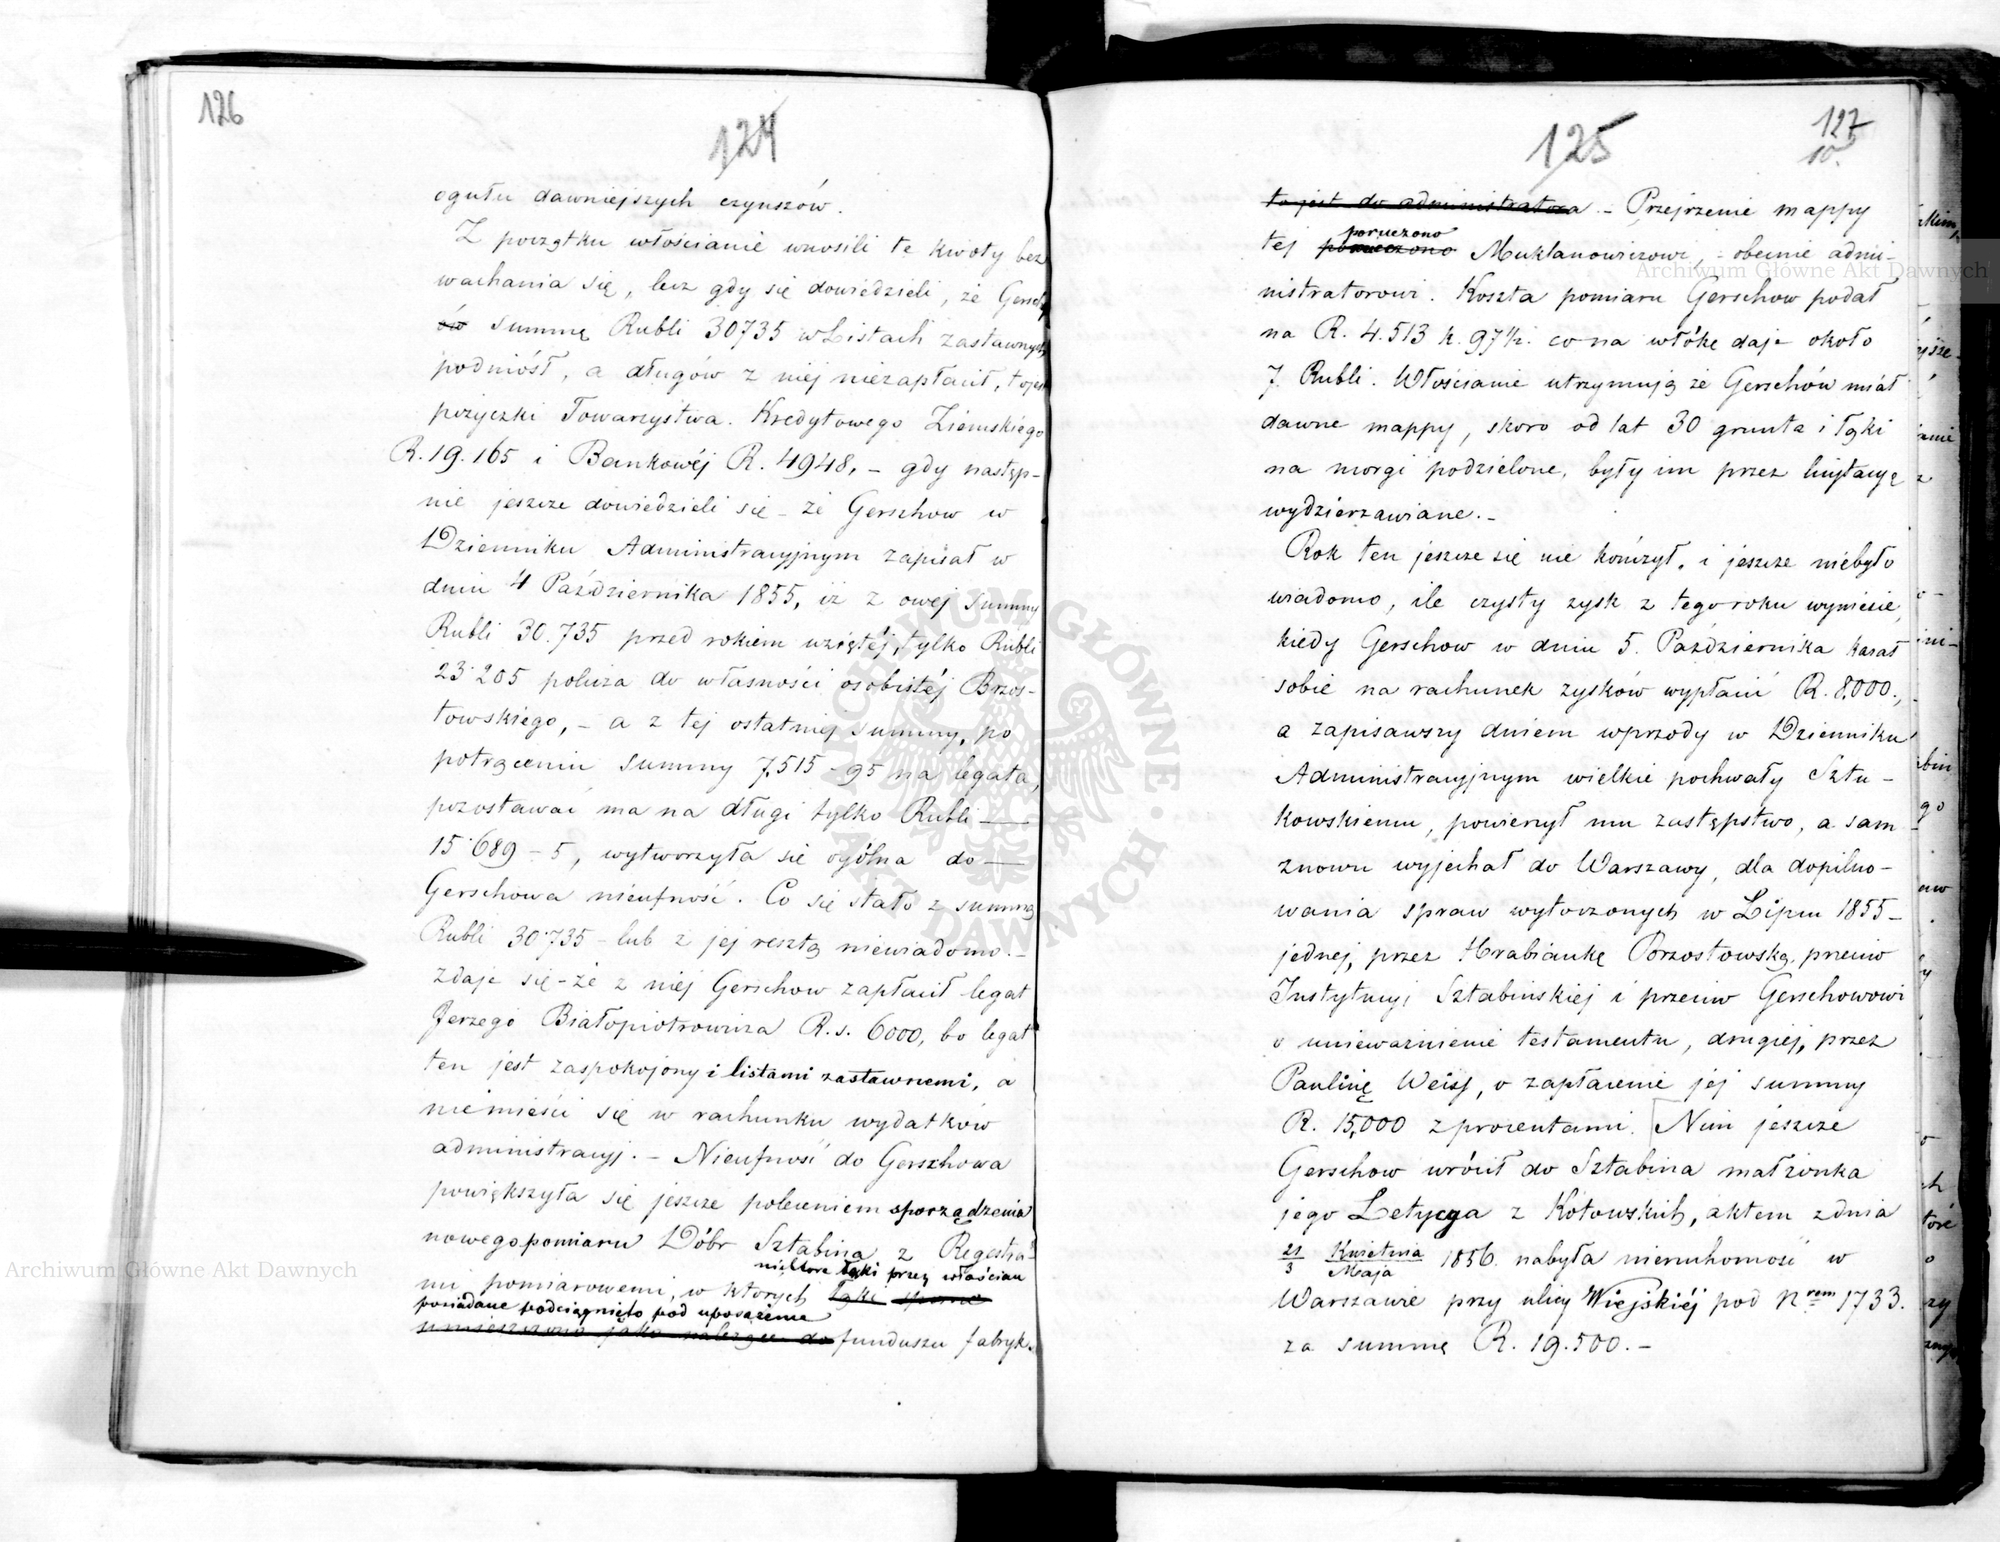 126
124
ogułu dawniejszych czynszów.
Z początku włościanie wnosili te kwoty bez
wachania się, lecz gdy się dowiedzieli, że Gersch
ów summę Rubli 30735 w Listach zastawnych
podniósł, a długów z niej niezapłacił, to jest
pożyczki Towarzystwa Kredytowego Ziemskiego
R. 19.165 i Bankowéj R. 4948, – gdy następ-
nie jeszcze dowiedzieli się – że Gerschow w
Dzienniku Administracyjnym zapisał w
dniu 4 Października 1855, iż z owej summy
Rubli 30.735 przed rokiem wziętéj, tylko Rubli
23.205 policza do własności osobistéj Brzos-
towskiego, – a z tej ostatniej summy, po
potrąceniu summy 7,515 – 95 na legata,
pozostawać ma na długi tylko Rubli —
15.689 – 5, wytworzyła się ogólna do —
Gerschowa nieufność. Co się stało z summą
Rubli 30.735 – lub z jej resztą niewiadomo. –
zdaje się – że z niéj Gerschow zapłacił legat
Jerzego Białopiotrowicza R. s. 6000, bo legat
ten jest zaspokojony i listami zastawnemi, a
niemieści się w rachunku wydatków
administracyj. – Nieufność do Gerschowa
powiększyła się jeszcze poleceniem sporządzenia
nowego pomiaru Dóbr Sztabina z Regestra-
niektore łąki przez włościan
mi pomiarowemi, w ktorych łąki sporne
posiadane podciągnięto pod uposażenie
umieszczono jako należące do funduszu fabryk.
127
10.
125
to jest do administratora. – Przejrzenie mappy
poruczono
tej poruczono Muklanowiczowi, – obecnie admi-
nistratorowi. Koszta pomiaru Gerschow podał
na R. 4.513 k. 97½. co na włókę daje około
7. Rubli. Włościanie utrzymują że Gerschów miał
dawne mappy, skoro od lat 30 grunta i łąki
na morgi podzielone, były im przez licytacyę
wydzierzawiane. –
Rok ten jeszcze się nie kończył, i jeszcze niebyło
wiadomo, ile czysty zysk z tego roku wyniesie,
kiedy Gerschow w dniu 5. Października kazał
sobie na rachunek zysków wypłacić R. 8,000.,
a zapisawszy dniem wprzody w Dzienniku
Administracyjnym wielkie pochwały Sztu-
kowskiemu, powierzył mu zastępstwo, a sam
znowu wyjechał do Warszawy, dla dopilno-
wania spraw wytoczonych w Lipcu 1855 –
jednej, przez Hrabiankę Brzostowską, przeciw
Instytucyi Sztabińskiej i przeciw Gerschowowi
o unieważnienie testamentu, drugiéj, przez
Paulinę Weiss, o zapłacenie jéj summy
R. 15,000 z procentami. Nim jeszcze
Gerschow wrócił do Sztabina małżonka
jego Letycya z Kotowskich, aktem z dnia
21/3 Kwietnia/Maja 1856. nabyła nieruchomość w
Warszawie przy ulicy Wiejskiéj pod Nrem 1733.
za summę R. 19.500. –
Archiwum Główne Akt Dawnych
Archiwum Główne Akt Dawnych
ARCHIWUM GŁÓWNE AKT DAWNYCH